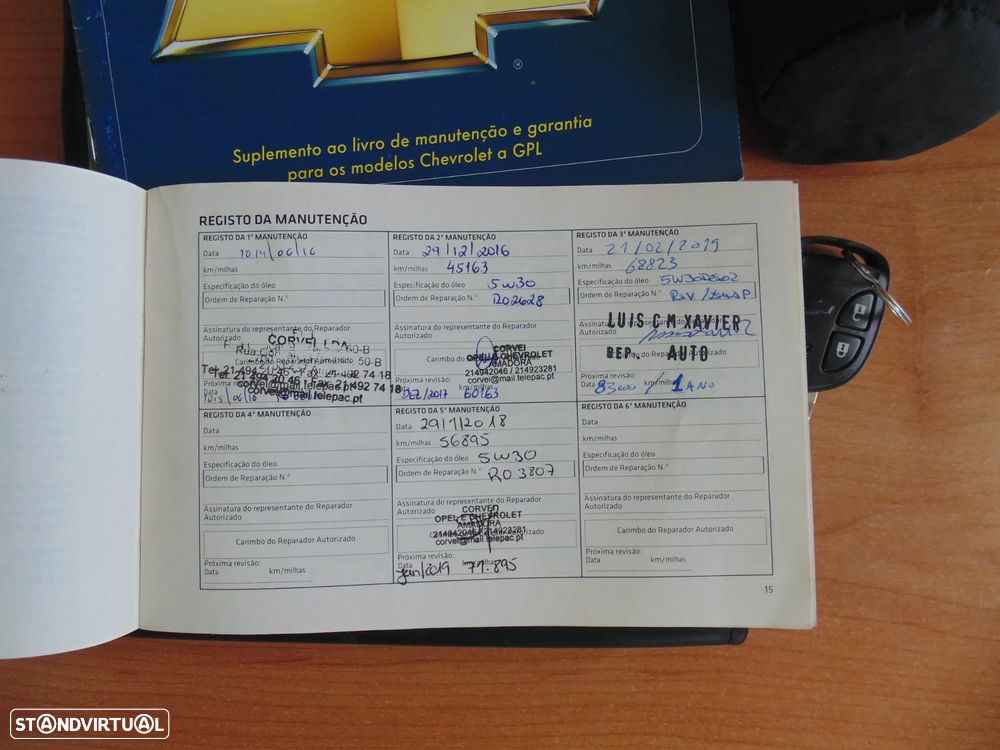 ®
Suplemento ao livro de manutenção e garantia
para os modelos Chevrolet a GPL
REGISTO DA MANUTENÇÃO
REGISTO DA 1ª MANUTENÇÃO
Data
km/milhas
Especificação do óleo
Ordem de Reparação N.º
Assinatura do representante do Reparador
CORVEI LDA
50-B
corvei@mail.telepac.pt
REGISTO DA 2ª MANUTENÇÃO
Data 29/12/2016
km/milhas 45163
Especificação do óleo 5W30
Ordem de Reparação N.º RO2628
Assinatura do representante do Reparador
Autorizado
Carimbo do
CORVEI
OPEL E CHEVROLET
AMADORA
214942046 / 214923281
corvei@mail.telepac.pt
Próxima revisão:
DEZ/2017 60163
REGISTO DA 3ª MANUTENÇÃO
Data 21/02/2019
km/milhas 68823
Especificação do óleo
Ordem de Reparação N.º
Assinatura do representante do Reparador
LUIS C M XAVIER
REP. AUTO
Próxima revisão:
Data 83000 km/milhas / 1 ANO
REGISTO DA 4ª MANUTENÇÃO
Data
km/milhas
Especificação do óleo
Ordem de Reparação N.º
Assinatura do representante do Reparador
Autorizado
Carimbo do Reparador Autorizado
Próxima revisão:
Data km/milhas
REGISTO DA 5ª MANUTENÇÃO
Data 29/1/2018
km/milhas 56895
Especificação do óleo 5W30
Ordem de Reparação N.º RO 3807
Assinatura do representante do Reparador
Autorizado
CORVEI
OPEL E CHEVROLET
AMADORA
214942046 / 214923281
corvei@mail.telepac.pt
Próxima revisão:
Data km/milhas
Jan/2019 71.895
REGISTO DA 6ª MANUTENÇÃO
Data
km/milhas
Especificação do óleo
Ordem de Reparação N.º
Assinatura do representante do Reparador
Autorizado
Carimbo do Reparador Autorizado
Próxima revisão:
Data km/milhas
15
STANDVIRTUAL